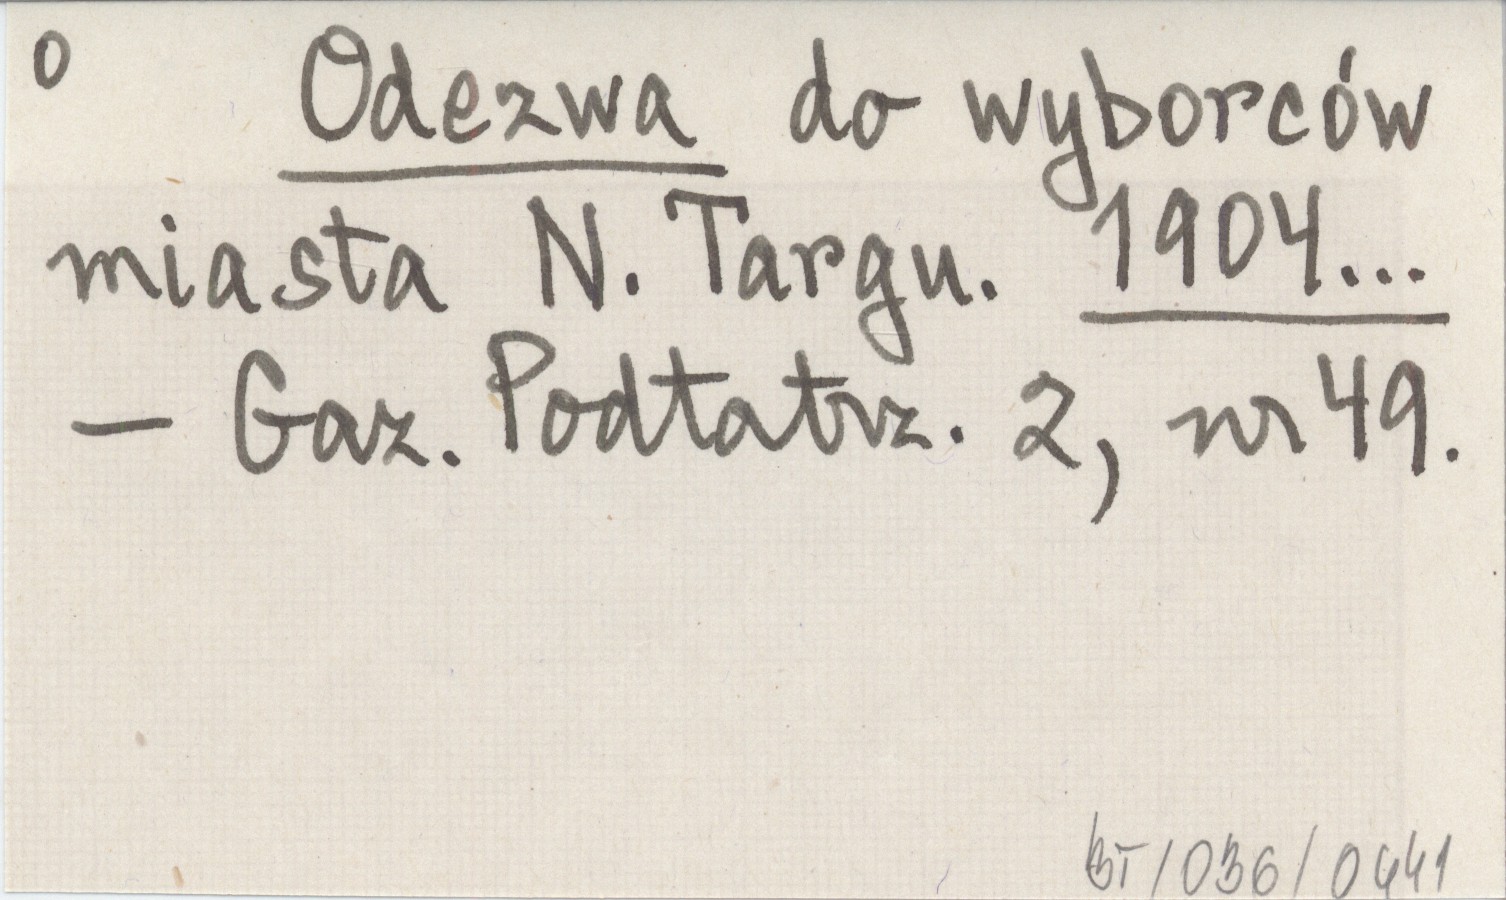 O
Odezwa do wyborców
miasta N. Targu. 1904...
— Gaz. Podtatrz. 2, nr 49.
BT/036/0441